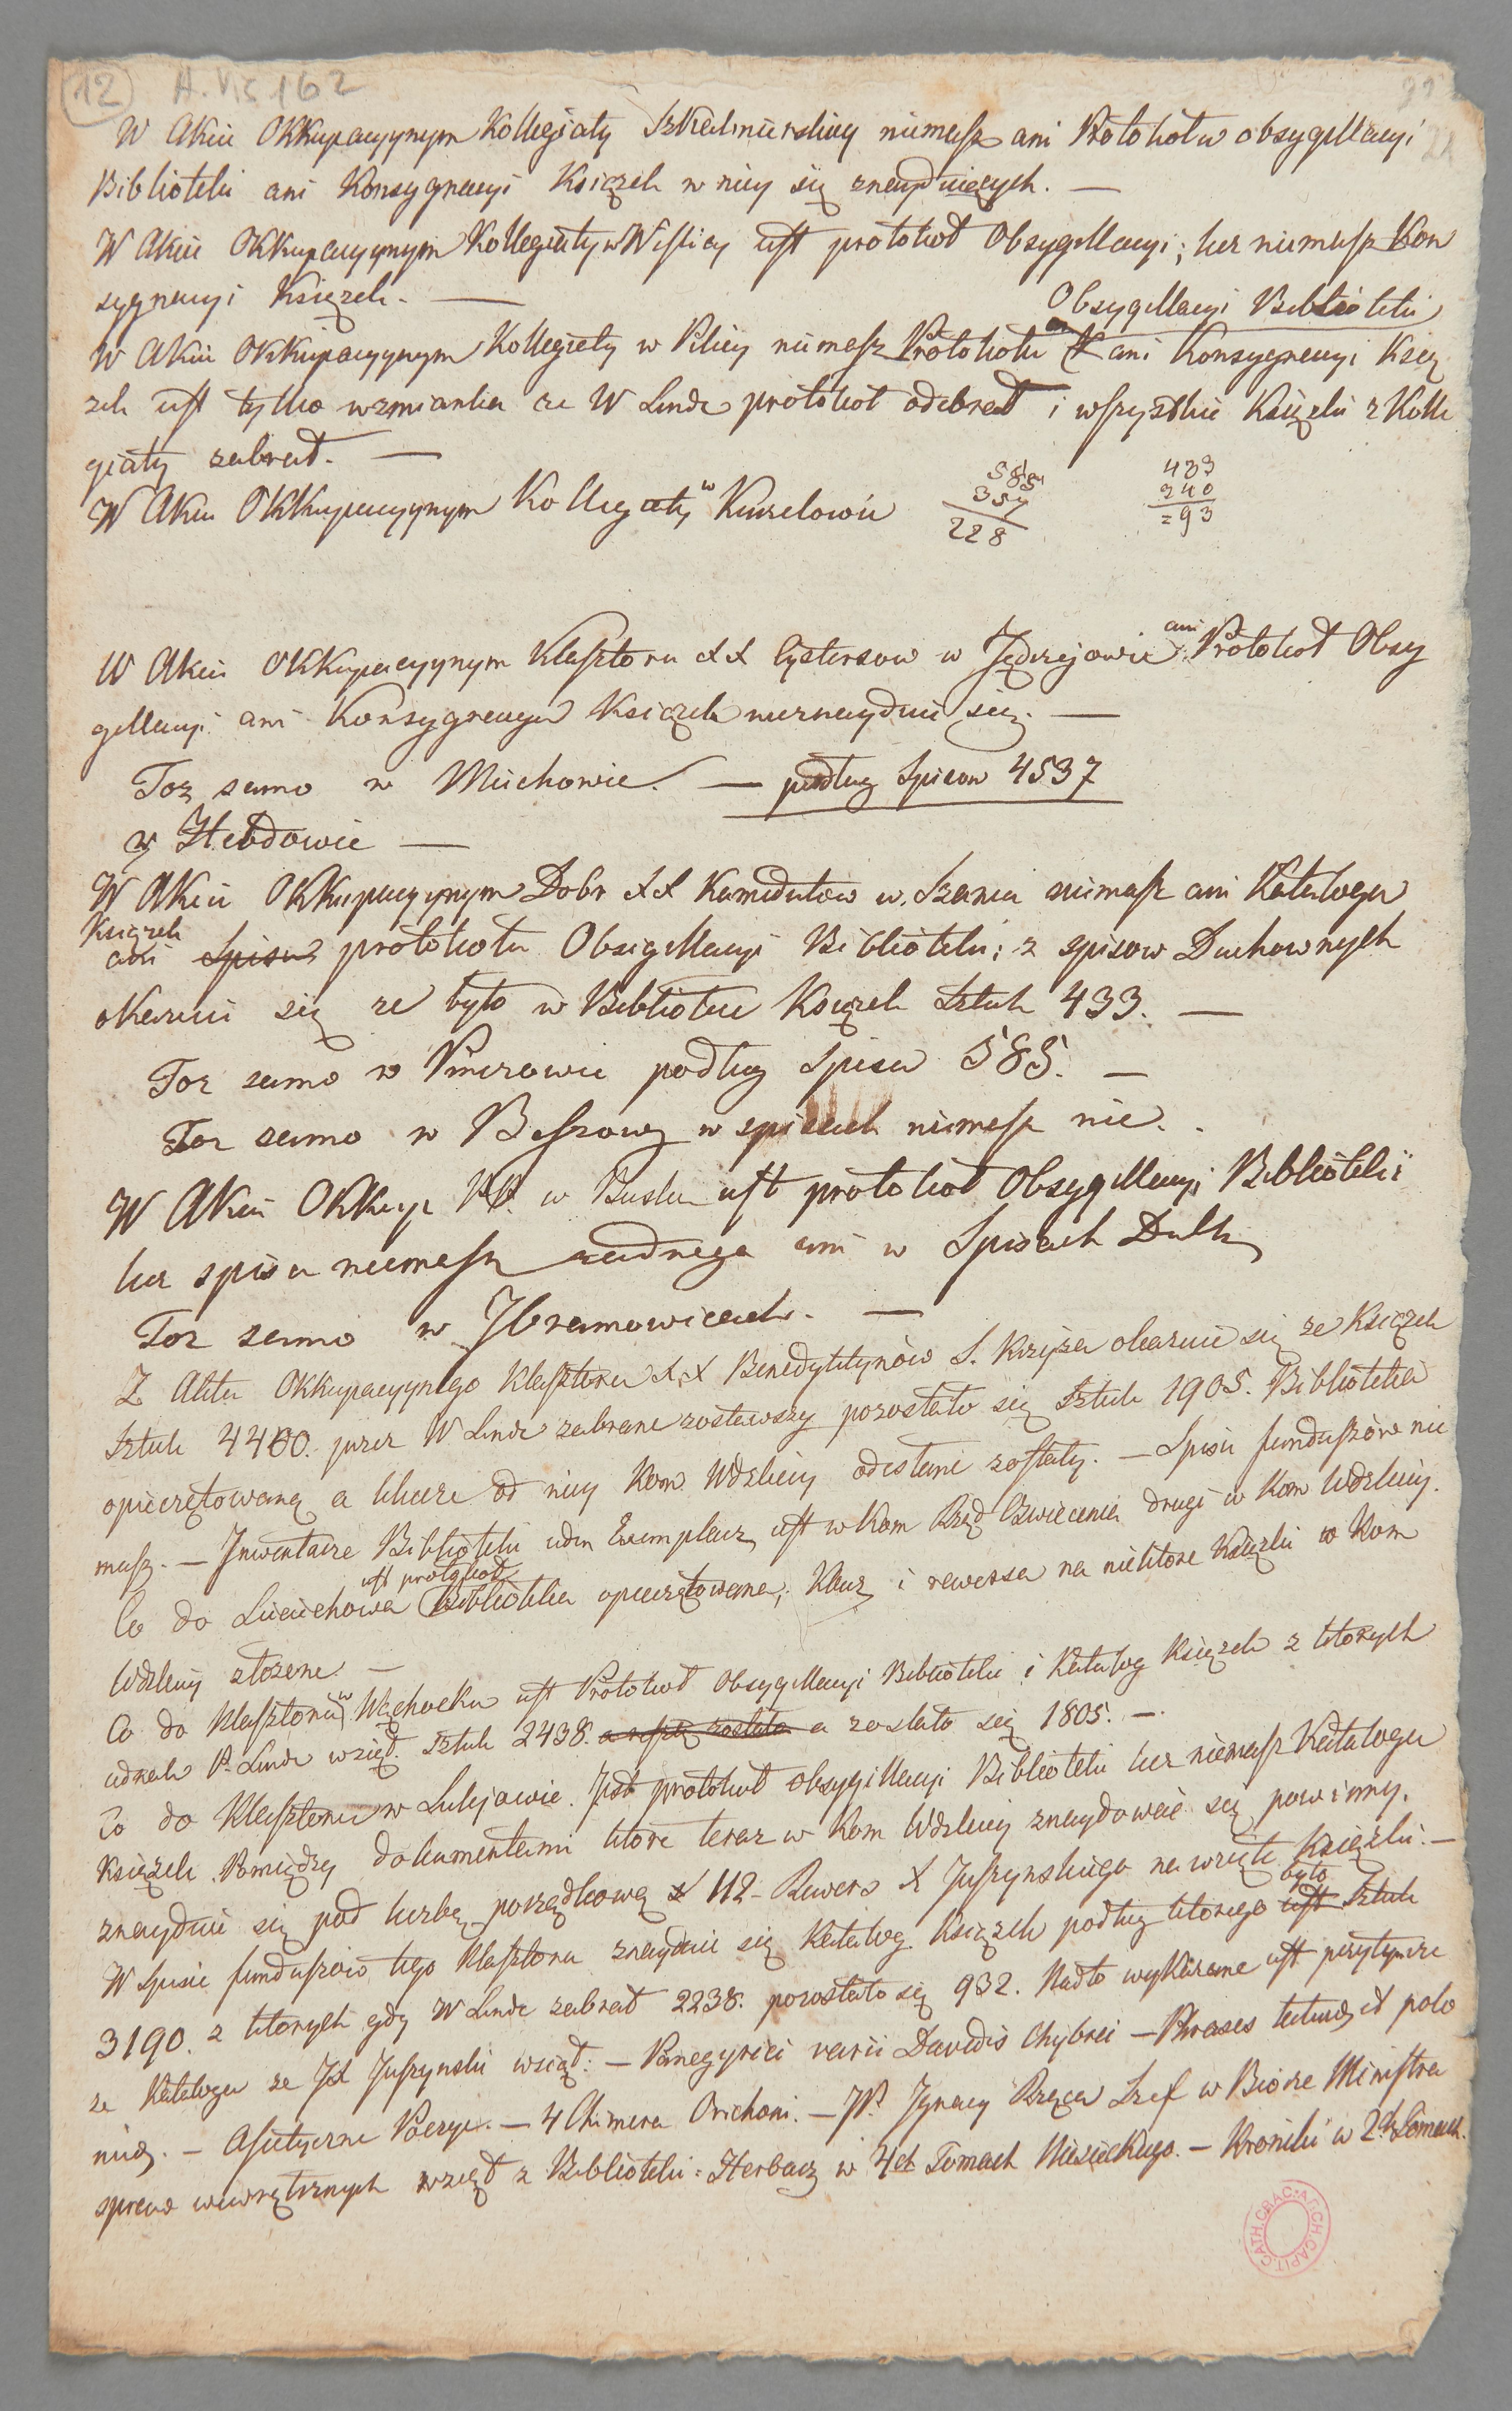 12 A. Vis 162
W Akcie Okkupacyynym Kollegiaty Szkalmierskiey niemasz ani Protokołu obsygillacyi
Biblioteki ani Konsygnacyi Książek w niey się znayduiących. —
W Akcie Okkupacyynym Kollegiaty w Wislicy iest protokoł Obsygillacyi; lecz niemasz Kon
sygnacyi Książek. —
Obsygillacyi Biblioteki
W Akcie Okkupacyynym Kollegiaty w Pilicy niemasz Protokołu ani Konsygnacyi Ksią
zek iest tylko wzmianka że W Linde protokoł odebrał i wszystkie Książki z Kolle
giaty zabrał. —
W Akcie Okkupacyynym Kollegiaty w Kurzelowie
585 433
357 240
228 =93
W Akcie Okkupacyynym Klasztoru XX Cystersow w Jędrzejowie ani Protokoł Obsy
gillacyi ani Konsygnacya Książek nieznayduie się. —
Toż samo w Miechowie. — podług Spisow 4537
w Hebdowie —
W Akcie Okkupacyynym Dobr XX Kamedułow w Szańcu niemasz ani Kataloga
Książek
ani Spisu protokołu Obsigillacyi Biblioteki; z spisow Duchownych
okazuie się że było w Bibliotece Książek Sztuk 433. —
Toż samo w Pinczowie podług Spisu 585. —
Toż samo w Beszowy w spisach niemasz nic.
W Akcie Okkup PP. w Busku iest protokoł Obsygillacyi Biblioteki
lecz spisu niemasz żadnego ani w Spisach Duch
Toż samo w Jbramowicach. —
Z Aktu Okkupacyynego Klasztoru XX Benedyktynów S. Krzyża okazuie się że Książek
Sztuk 4400. przez W Linde zabrane zostawszy pozostało się Sztuk 1905. Biblioteka
opieczętowaną a klucze od niey Kom. Wdzkiey odesłane zostały. — Spisu funduszów nie
masz. — Inwentarze Biblioteki ieden Exemplarz iest w Kom Rząd Oświecenia drugi w Kom Wdzkiey.
iest protokoł
Co do Sieciechowa Biblioteka opieczętowana; Klucz i rewersa na niektore Książki w Kom
Wdzkiey złożone. —
Co do Klasztoru w Wąchocku iest Protokoł Obsygillacyi Biblioteki i Katalog Książek z ktorych
iednak P. Linde wziął Sztuk 2438. a reszta została a zostało się 1805. —
Co do Klasztoru w Sulejowie. Jest protokoł obsygillacyi Biblioteki lecz niemasz Kataloga
Książek. Pomiędzy dokumentami ktore teraz w Kom Wdzkiey znaydować się powinny.
znayduie się pod liczbą porządkową 112 Rewers X Juszynskiego na wzięte Książki. —
było
W Spisie funduszow tego Klasztoru znayduie się Katalog Książek podług ktorego iest Sztuk
3190. z ktorych gdy W Linde zabrał 2238. pozostało się 932. Nadto wykazane iest przytymże
ze Kataloga że JX Juszynski wziął: — Panegyrici varii Davidis Chybrei — Phrases it polo
nicę. — Poezye. — 4 Chimera Orichovi. — JP. Ignacy Szef w Biórze Ministra
spraw wewnętrznych wziął z Biblioteki = Herbarz w 4ch Tomach Niesieckiego. — Kroniki w 2ch Tomach.
CATH. CRAC. ARCH. CAPIT.